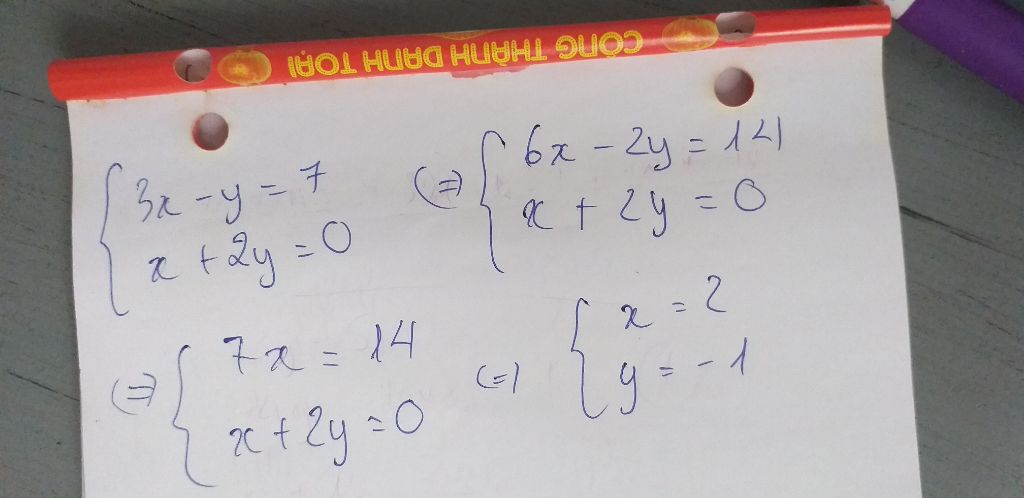 CÔNG THÀNH DANH TOẠI
{ 3x - y = 7
x + 2y = 0
(=) { 6x - 2y = 14
x + 2y = 0
(=) { 7x = 14
x + 2y = 0
(=) { x = 2
y = -1